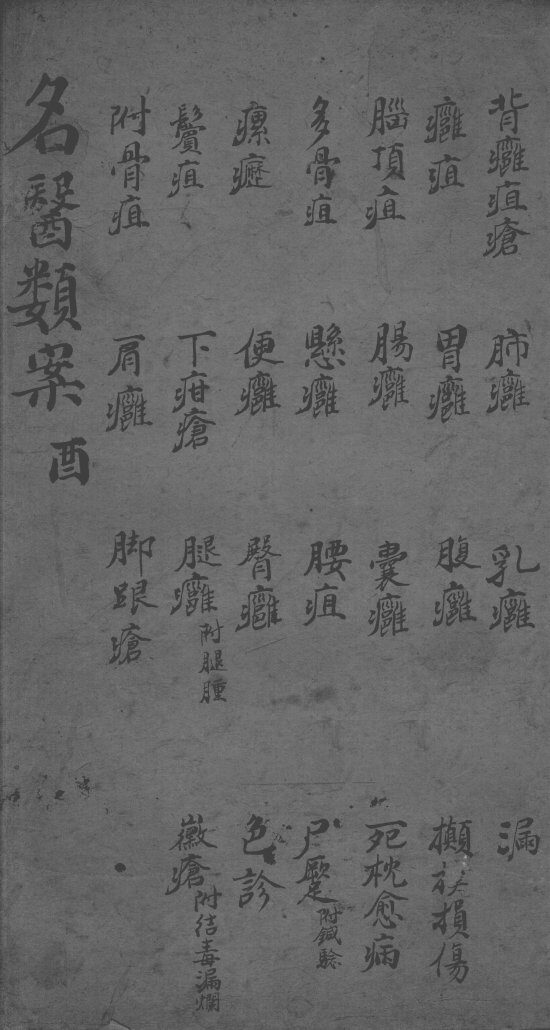 背癰疽瘡
肺癰
乳癰
漏
癰疽
胃癰
腹癰
攧撲損傷
腦頂疽
腸癰
囊癰
死枕愈病
多骨疽
懸癰
腰疽
尸蹷附鍼驗
瘰癧
便癰
臀癰
色診
鬢疽
下疳瘡
腿癰附腿腫
黴瘡附結毒漏爛
附骨疽
肩癰
脚跟瘡
名醫類案
酉